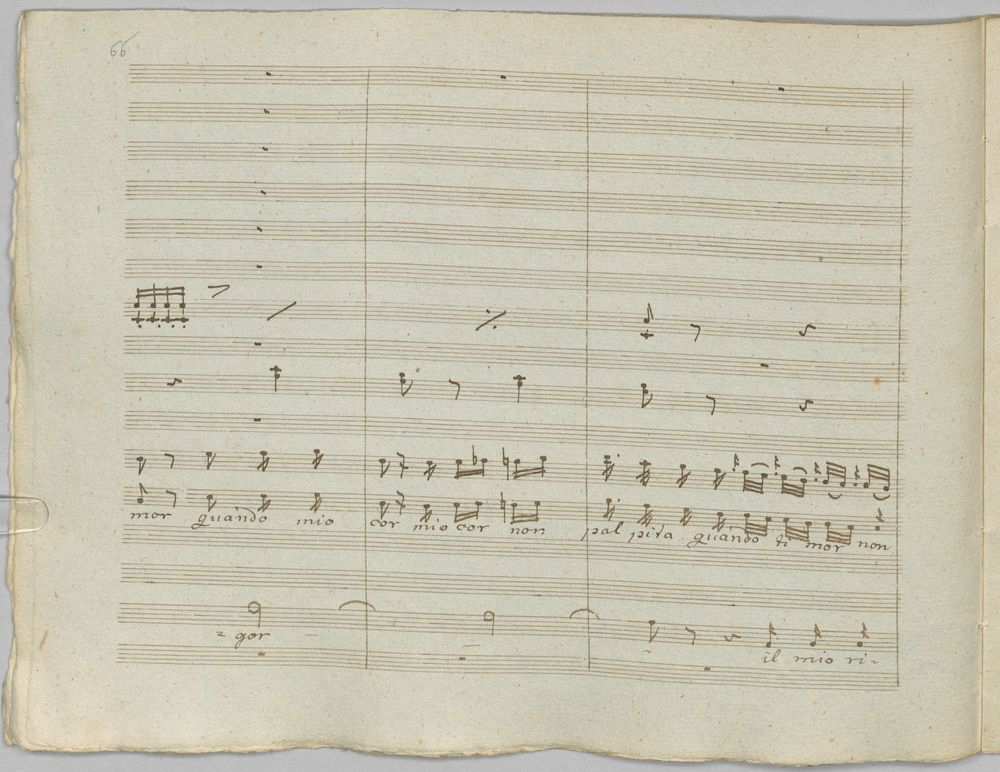 66
mor quando mio cor mio cor non pal pita quando ti mor non
= gor
il mio ri-